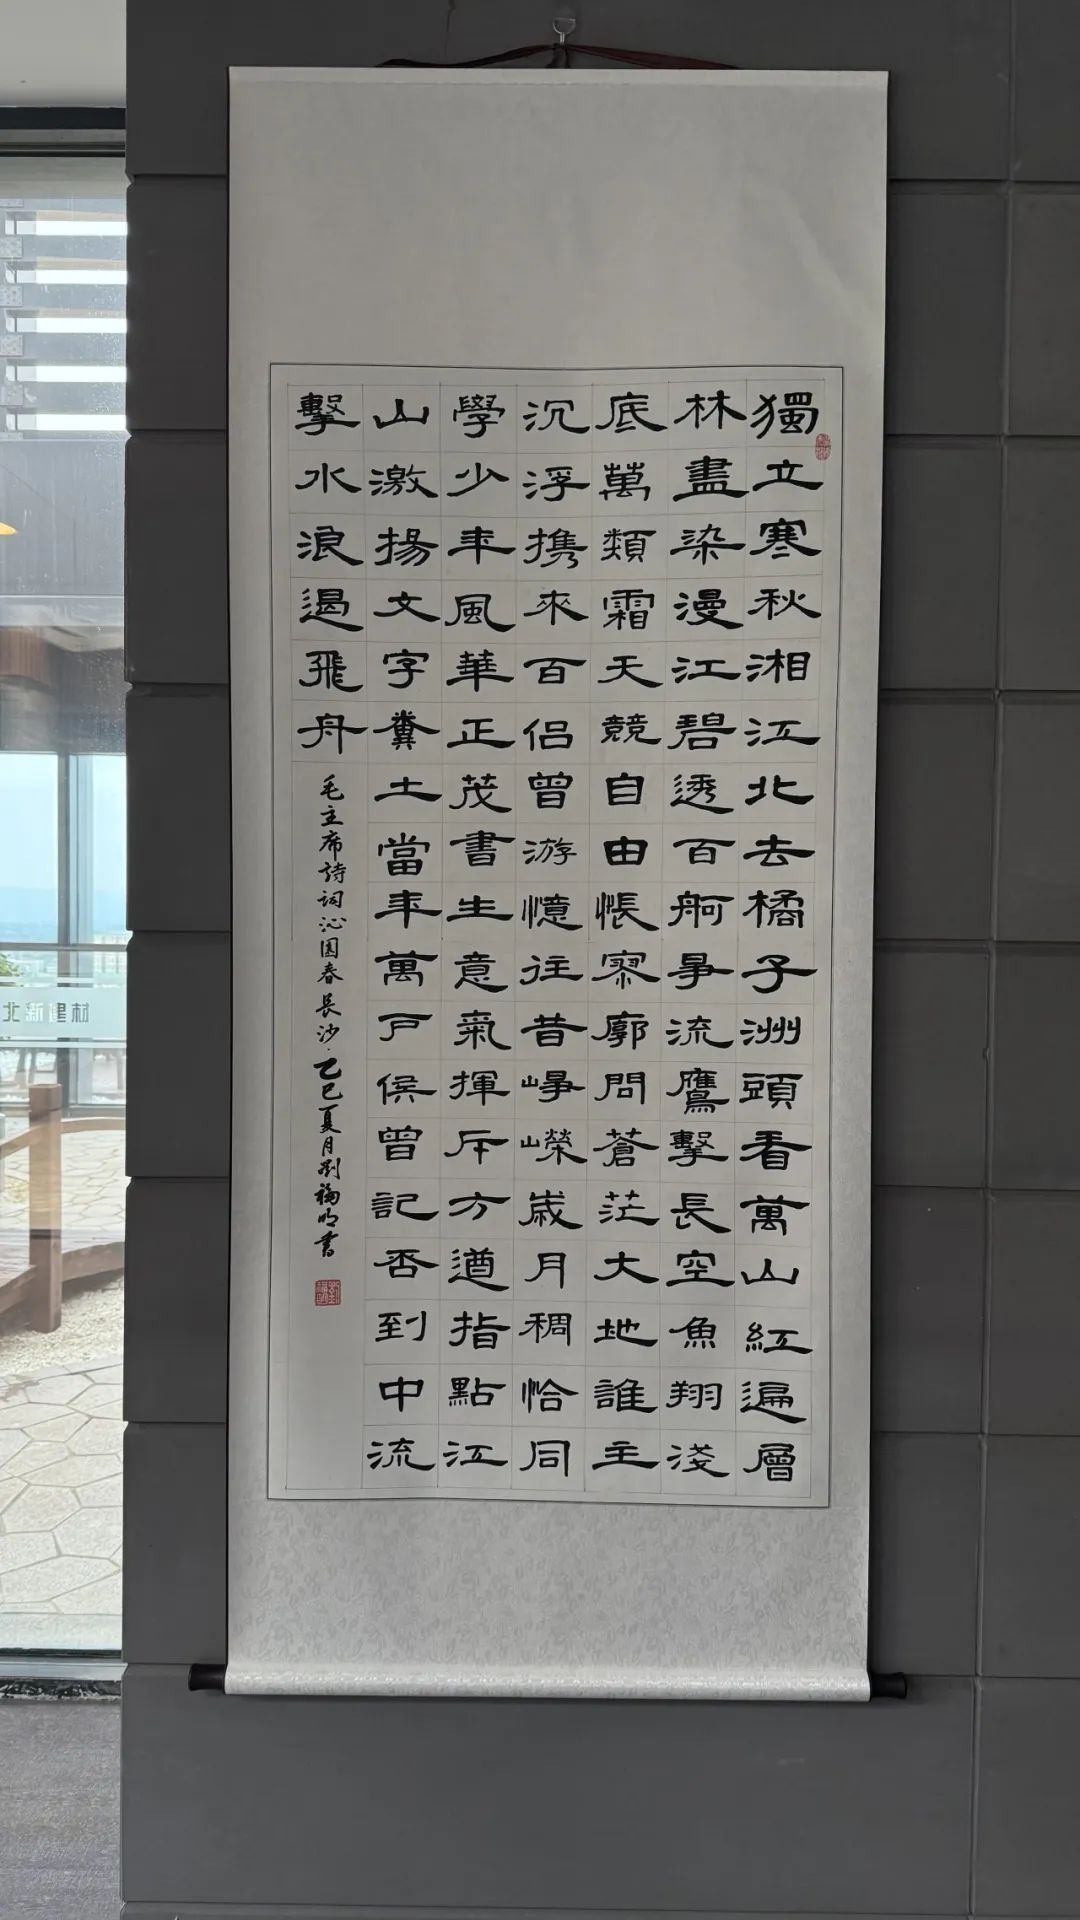 獨立寒秋湘江北去橘子洲頭看萬山紅遍層
林盡染漫江碧透百舸爭流鷹擊長空魚翔淺
底萬類霜天競自由悵寥廓問蒼茫大地誰主
沉浮携來百侣曾游憶往昔崢嶸歲月稠恰同
學少年風華正茂書生意氣揮斥方遒指點江
山激揚文字糞土當年萬户侯曾記否到中流
擊水浪遏飛舟
毛主席詩詞沁园春長沙·乙巳夏月劉福明書
北新建材